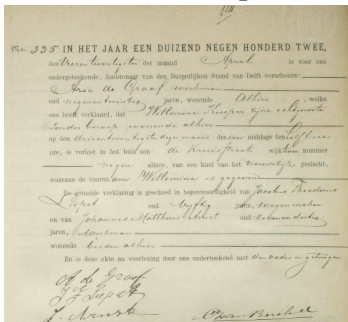 No. 335 IN HET JAAR EEN DUIZEND NEGEN HONDERD TWEE,
den Vierentwintigsten der maand April is voor ons
ondergeteekende, Ambtenaar van den Burgerlijken Stand van Delft verschenen:
Arie de Graaf werkman
oud negenentwintig jaren, wonende Alhier, welke
ons heeft verklaard, dat Willemina zijne echtgenoote
zonder beroep wonende alhier
op den dezer maand des voor middags ten elf
ure, is verlost in het huis aan de wijk nommer
negen alhier, van een kind van het vrouwelijk geslacht,
waaraan de voornaam Willemina is gegeven
De gemelde verklaring is geschied in tegenwoordigheid van Jacobus Theodorus
oud vijftig jaren, wagenmaker
en van Johannes Mattheus oud
jaren, werkman
wonende beiden alhier
En is deze akte na voorlezing door ons onderteekend met den vader en getuigen
A de Graaf